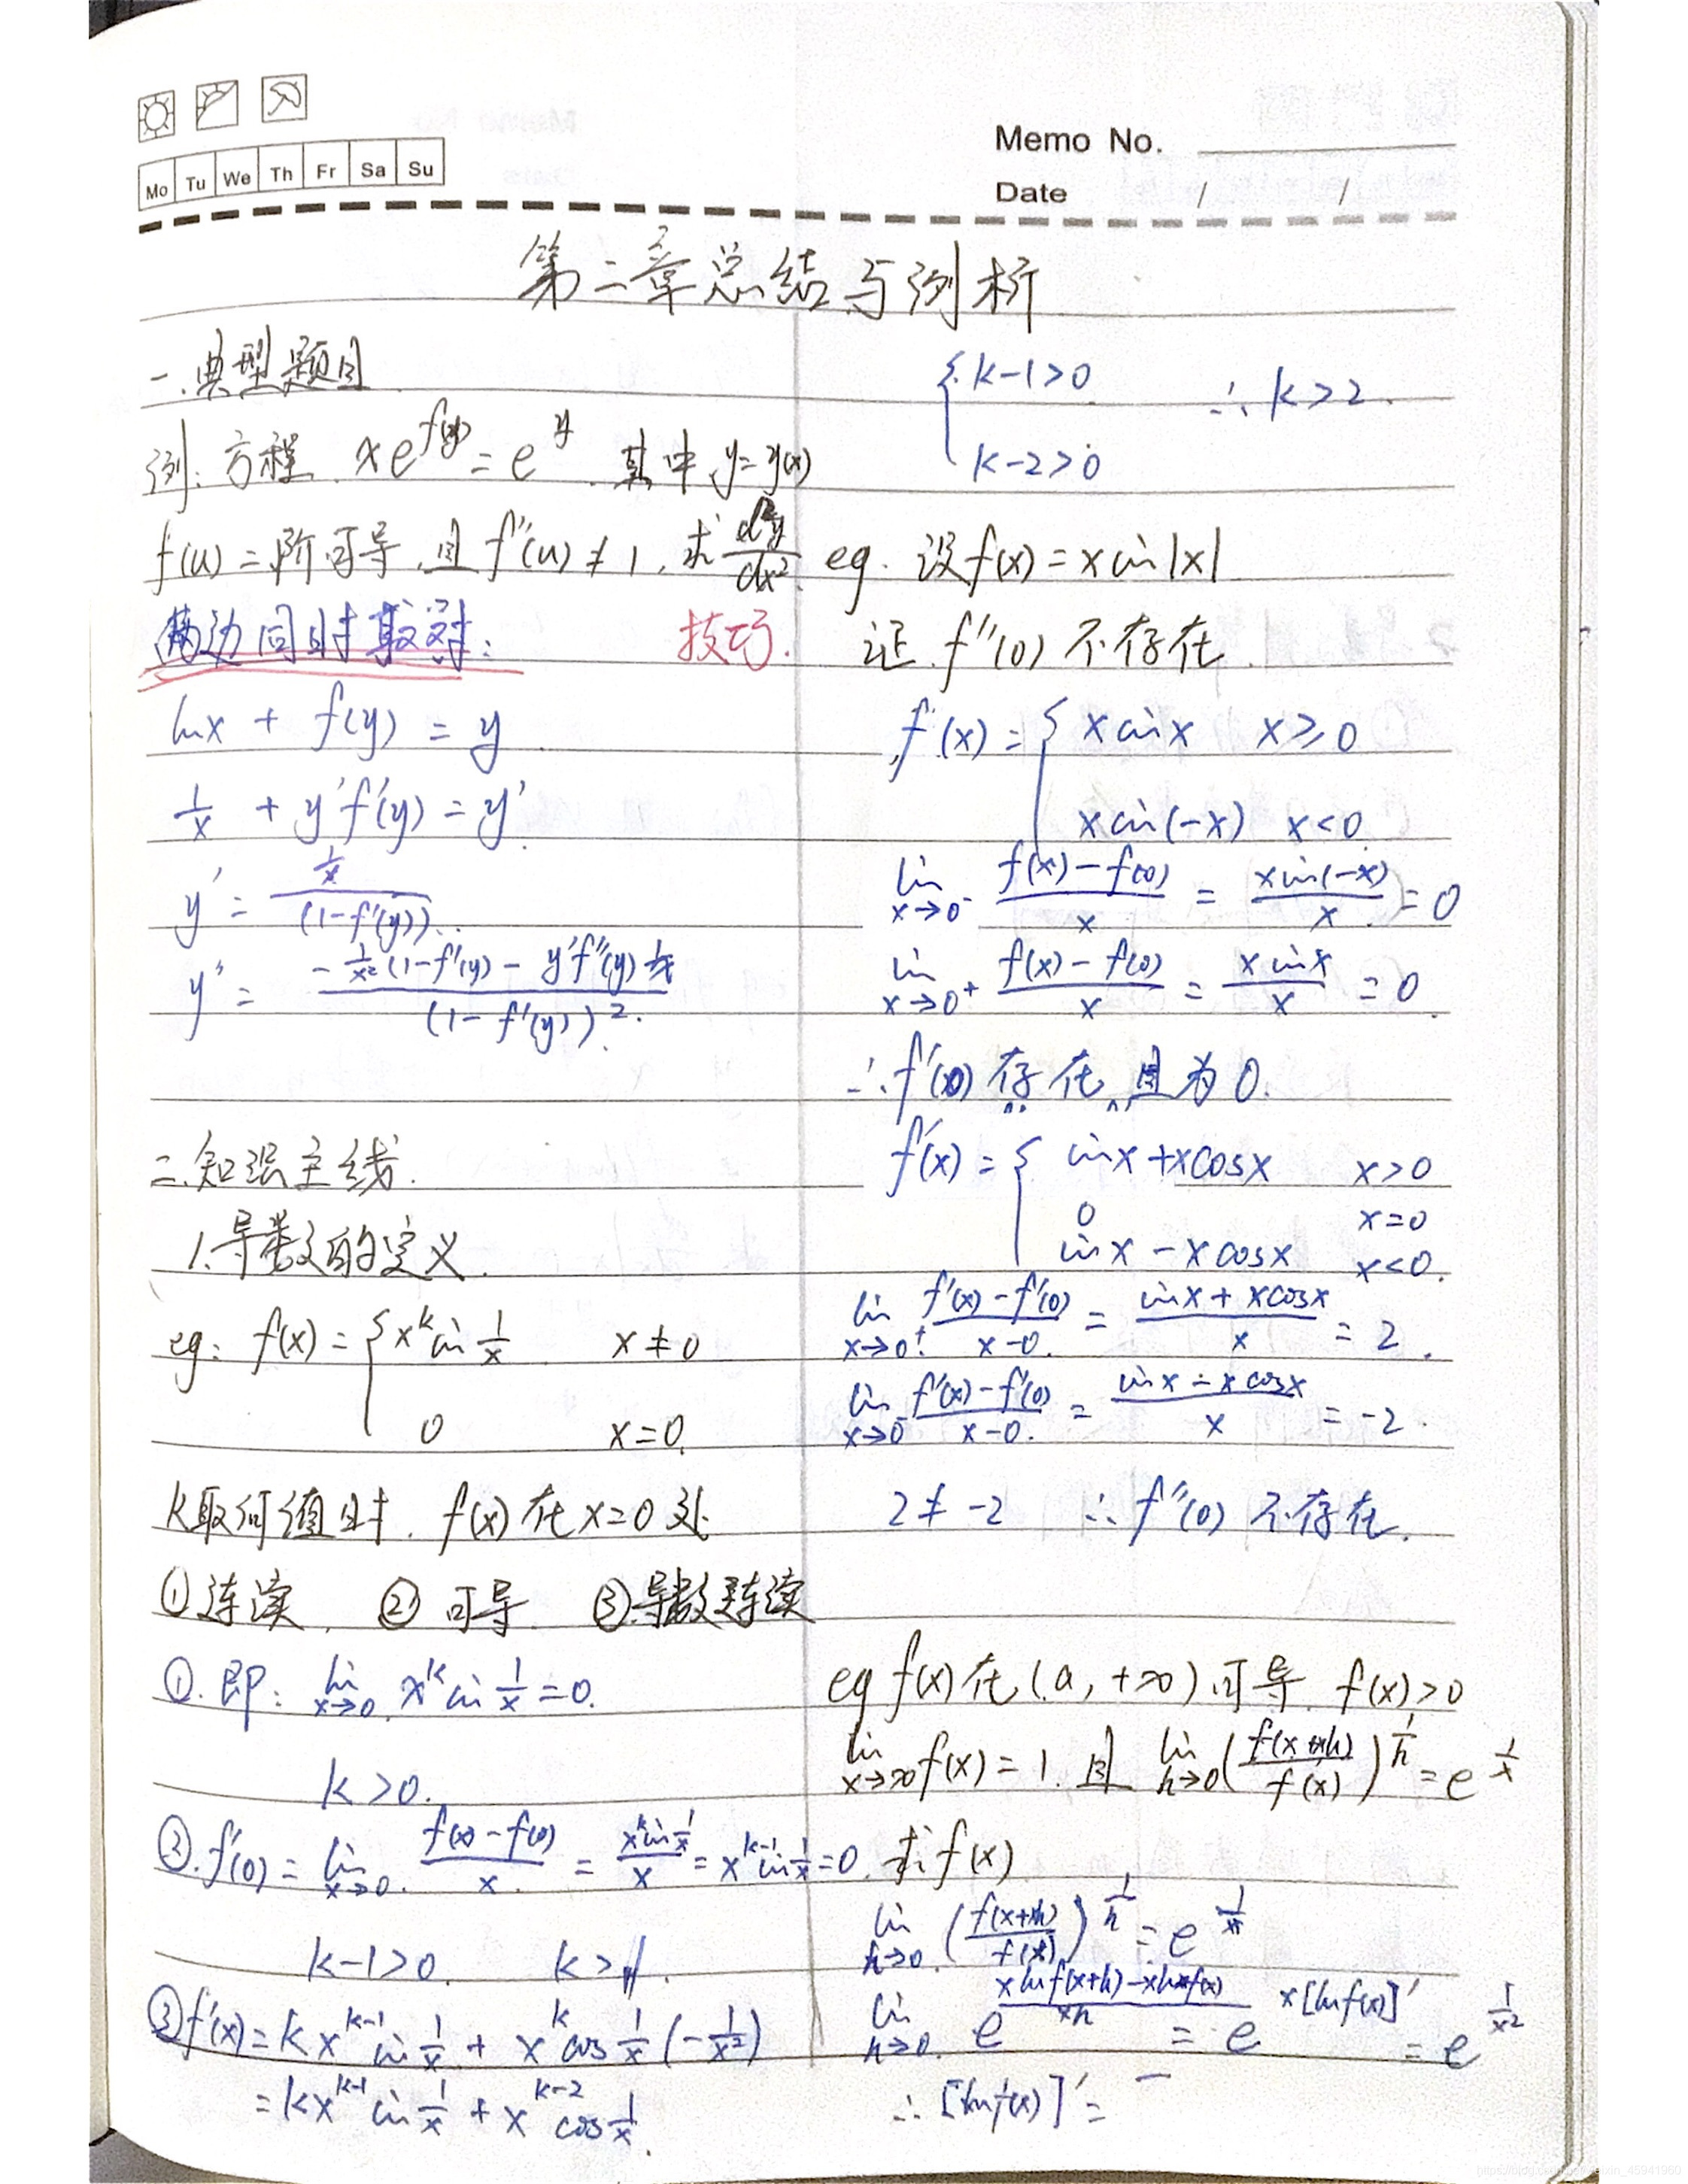 Mo Tu We Th Fr Sa Su
Memo No.
Date / /
第二章总结与例析
一.典型题目
例:方程 xe^{f(y)} = e^y 其中 y=y(x)
f(u)二阶可导,且 f''(u)≠1,求 \frac{d^2y}{dx^2}
两边同时取对: 技巧.
lnx + f(y) = y
\frac{1}{x} + y'f'(y) = y'
y' = \frac{\frac{1}{x}}{(1-f'(y))}
y'' = \frac{-\frac{1}{x^2}(1-f'(y)) - y'f''(y)\frac{1}{x}}{(1-f'(y))^2}.
二.知识主线.
1.导数的定义.
eg: f(x) = { x^k sin\frac{1}{x} x≠0
0 x=0.
k取何值时. f(x)在x=0处
①连续. ②可导. ③导数连续
①.即: \lim_{x→0} x^k sin\frac{1}{x} = 0.
k>0.
②.f'(0) = \lim_{x→0} \frac{f(x)-f(0)}{x} = \frac{x^k sin\frac{1}{x}}{x} = x^{k-1} sin\frac{1}{x} = 0.
k-1>0. k>1.
③f'(x) = kx^{k-1} sin\frac{1}{x} + x^k cos\frac{1}{x}(-\frac{1}{x^2})
= kx^{k-1} sin\frac{1}{x} + x^{k-2} cos\frac{1}{x}.
{ k-1>0 ∴ k>2.
k-2>0
eg. 设f(x) = x sin|x|
证 f''(0) 不存在.
f(x) = { x sinx x≥0
x sin(-x) x<0
\lim_{x→0^-} \frac{f(x)-f(0)}{x} = \frac{x sin(-x)}{x} = 0
\lim_{x→0^+} \frac{f(x)-f(0)}{x} = \frac{x sinx}{x} = 0.
∴f'(0)存在,且为0.
f'(x) = { sinx+xcosx x>0
0 x=0
sinx - xcosx x<0.
\lim_{x→0^+} \frac{f'(x)-f'(0)}{x-0.} = \frac{sinx+xcosx}{x} = 2.
\lim_{x→0^-} \frac{f'(x)-f'(0)}{x-0.} = \frac{sinx-xcosx}{x} = -2.
2≠-2 ∴f''(0) 不存在.
eg f(x)在(a, +∞)可导. f(x)>0
\lim_{x→∞} f(x)=1. 且 \lim_{h→0} (\frac{f(x+xh)}{f(x)})^{\frac{1}{h}} = e^{\frac{1}{x}}
求f(x)
\lim_{h→0} (\frac{f(x+xh)}{f(x)})^{\frac{1}{h}} = e^{\frac{1}{x}}
\lim_{h→0} e^{\frac{xlnf(x+h)-xlnf(x)}{xh}} = e^{x[lnf(x)]'} = e^{\frac{1}{x^2}}
∴[lnf(x)]' =